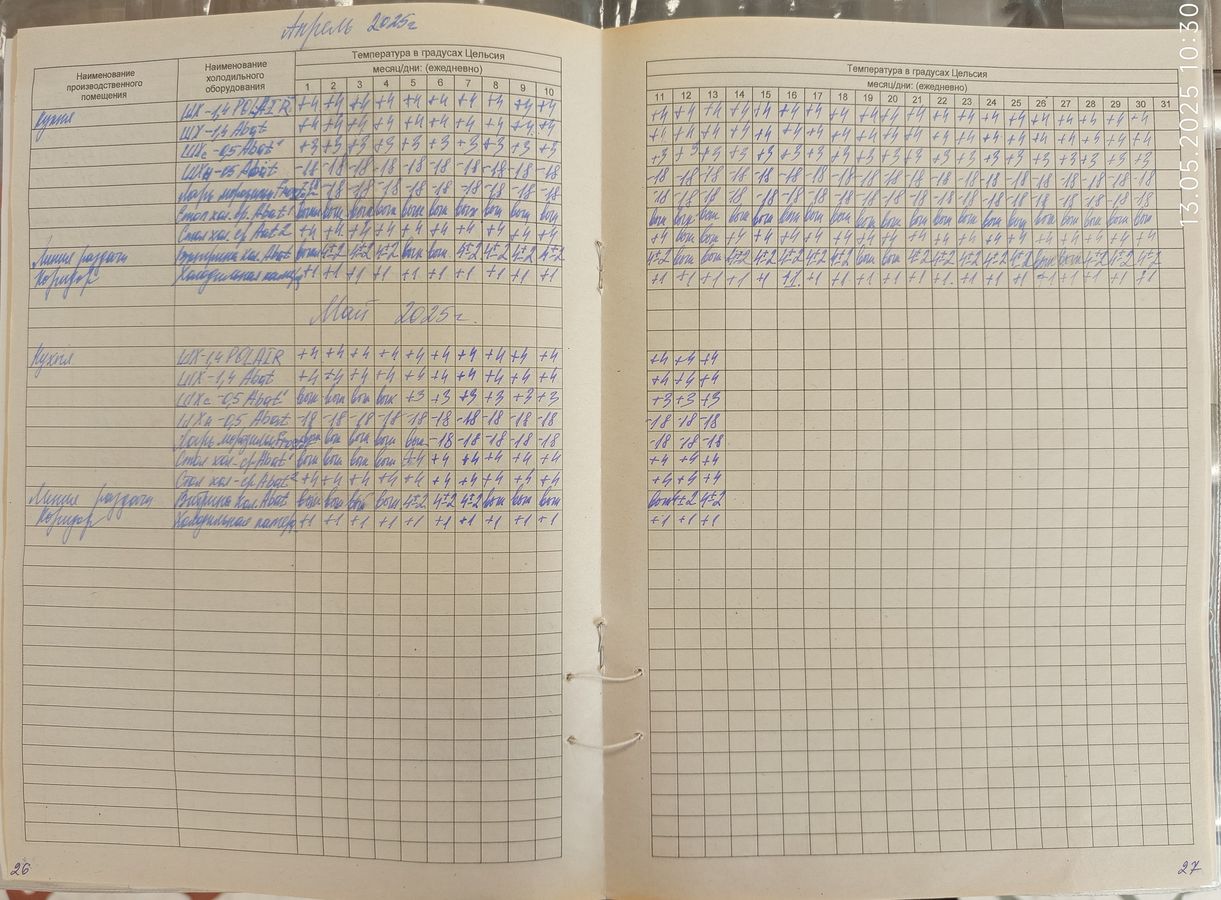 Апрель 2025г
Наименование производственного помещения Наименование холодильного оборудования Температура в градусах Цельсия
месяц/дни: (ежедневно)
1 2 3 4 5 6 7 8 9 10
Кухня ШХ-1,4 POLAIR +4 +4 +4 +4 +4 +4 +4 +4 +4 +4
ШХ-1,4 Abat +4 +4 +4 +4 +4 +4 +4 +4 +4 +4
ШХс-0,5 Abat +3 +3 +3 +3 +3 +3 +3 +3 +3 +3
ШХн-0,5 Abat -18 -18 -18 -18 -18 -18 -18 -18 -18 -18
Ларь морозильн. -18 -18 -18 -18 -18 -18 -18 -18 -18
Стол хол. ср. Abat 1
Стол хол. ср. Abat 2 +4 +4 +4 +4 +4 +4 +4 +4 +4 +4
Линия раздачи Витрина хол. Abat 4±2 4±2 4±2 4±2 4±2 4±2 4±2
Коридор Холодильная камера +1 +1 +1 +1 +1 +1 +1 +1 +1 +1
Май 2025г.
Кухня ШХ-1,4 POLAIR +4 +4 +4 +4 +4 +4 +4 +4 +4 +4
ШХ-1,4 Abat +4 +4 +4 +4 +4 +4 +4 +4 +4 +4
ШХс-0,5 Abat +3 +3 +3 +3 +3 +3
ШХн-0,5 Abat -18 -18 -18 -18 -18 -18 -18 -18 -18 -18
Ларь морозильн. -18 -18 -18 -18 -18
Стол хол-ср Abat 1 +4 +4 +4 +4 +4 +4
Стол хол-ср Abat 2 +4 +4 +4 +4 +4 +4 +4 +4 +4 +4
Линия раздачи Витрина хол. Abat 4±2 4±2 4±2
Коридор Холодильная камера +1 +1 +1 +1 +1 +1 +1 +1 +1 +1
26
Температура в градусах Цельсия
месяц/дни: (ежедневно)
11 12 13 14 15 16 17 18 19 20 21 22 23 24 25 26 27 28 29 30 31
+4 +4 +4 +4 +4 +4 +4 +4 +4 +4 +4 +4 +4 +4 +4 +4 +4 +4 +4 +4
+4 +4 +4 +4 +4 +4 +4 +4 +4 +4 +4 +4 +4 +4 +4 +4 +4 +4 +4 +4
+3 +3 +3 +3 +3 +3 +3 +3 +3 +3 +3 +3 +3 +3 +3 +3 +3 +3 +3 +3
-18 -18 -18 -18 -18 -18 -18 -18 -18 -18 -18 -18 -18 -18 -18 -18 -18 -18 -18 -18
-18 -18 -18 -18 -18 -18 -18 -18 -18 -18 -18 -18 -18 -18 -18 -18 -18 -18 -18 -18
+4 +4 +4 +4 +4 +4 +4 +4 +4 +4 +4 +4 +4 +4 +4 +4 +4 +4
4±2 4±2 4±2 4±2 4±2 4±2 4±2 4±2 4±2 4±2 4±2 4±2 4±2 4±2
+1 +1 +1 +1 +1 +1 +1 +1 +1 +1 +1 +1 +1 +1 +1 +1 +1 +1 +1 +1
+4 +4 +4
+4 +4 +4
+3 +3 +3
-18 -18 -18
-18 -18 -18
+4 +4 +4
+4 +4 +4
4±2 4±2
+1 +1 +1
27
13.05.2025 10:30